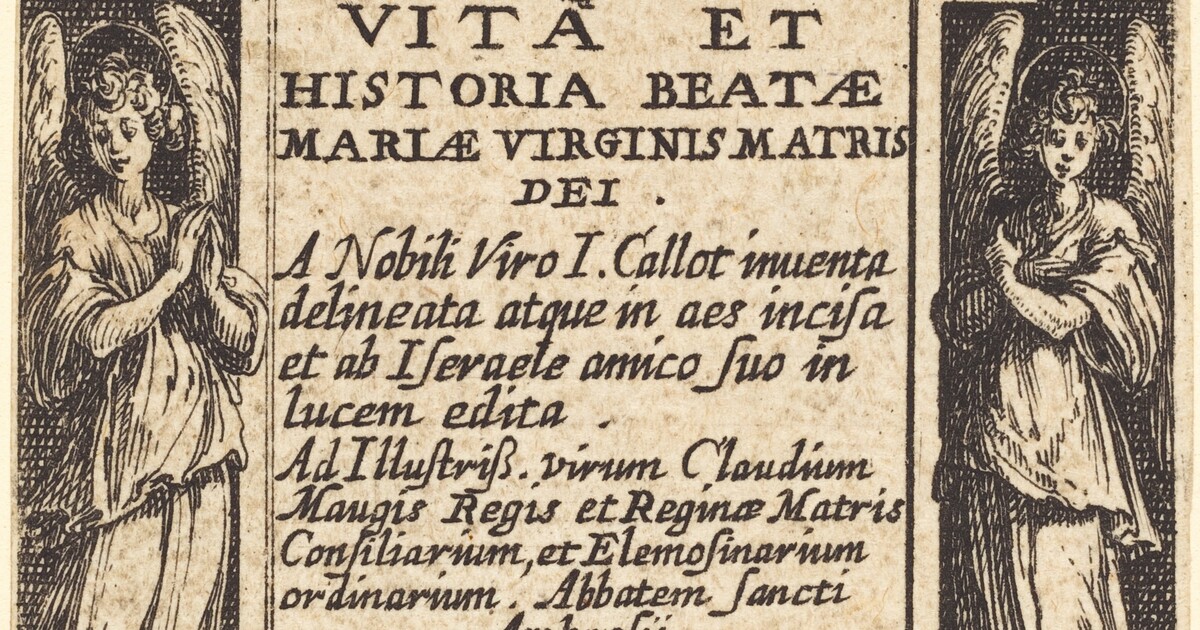 VITÃ ET
HISTORIA BEATÆ
MARIÆ VIRGINIS MATRIS
DEI .
A Nobili Viro I. Callot inuenta
delineata atque in aes inciſa
et ab Iſeraele amico ſuo in
lucem edita .
Ad Illuſtriſſ. virum Claudium
Maugis Regis et Reginæ Matris
Conſiliarium, et Elemoſinarium
ordinarium . Abbatem ſancti
Ambroſii